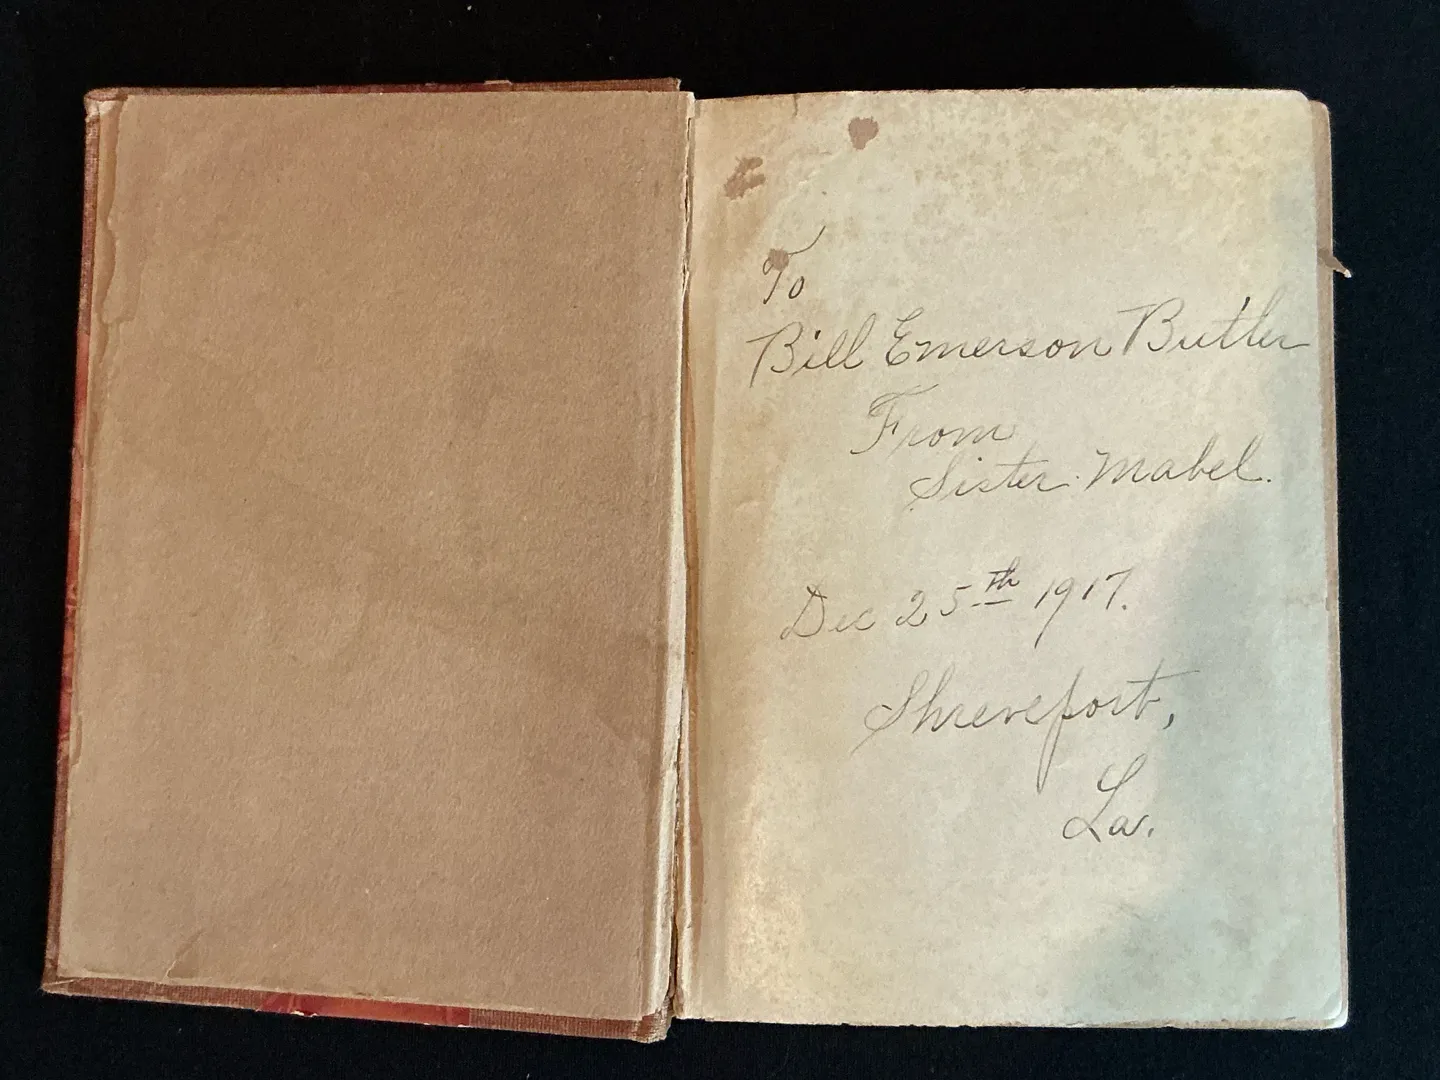 To
Bill Emerson Butler
From
Sister Mabel.
Dec 25th 1917.
Shreveport,
La.